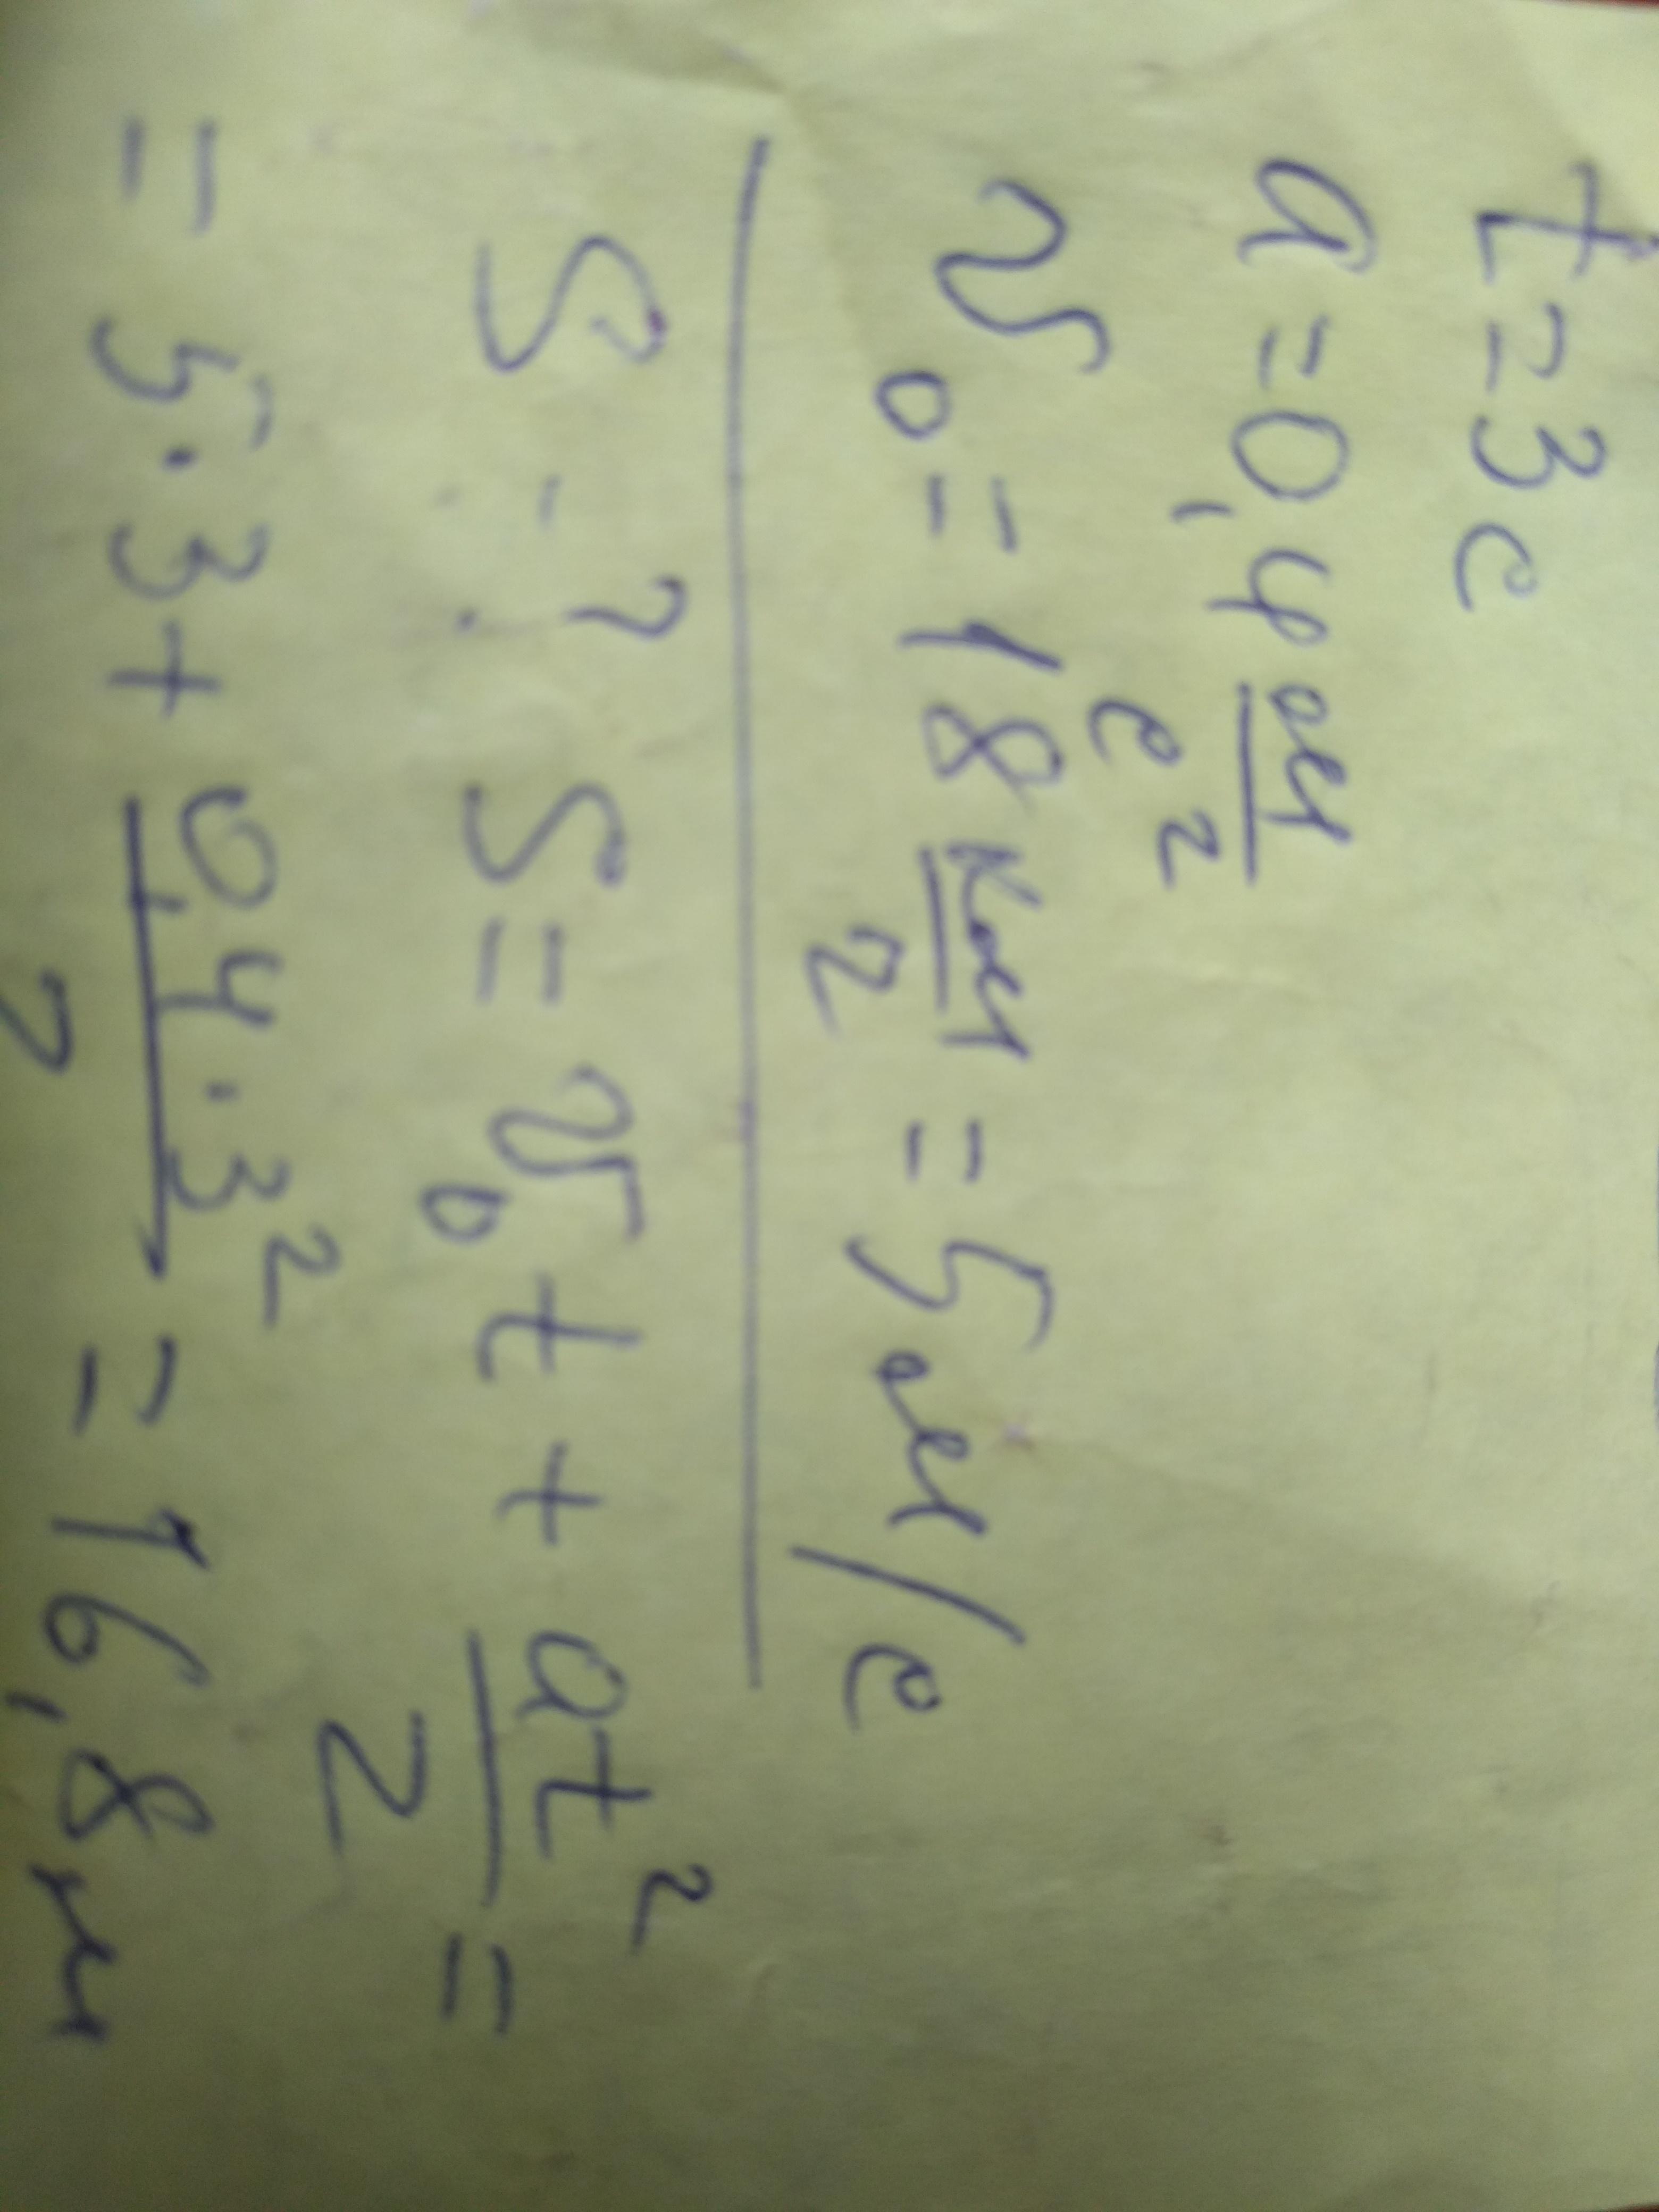 t = 3 с
a = 0,4 м/с²
v₀ = 18 км/ч = 5 м/с
S - ? S = v₀t + at²/2 =
= 5·3 + 0,4·3²/2 = 16,8 м